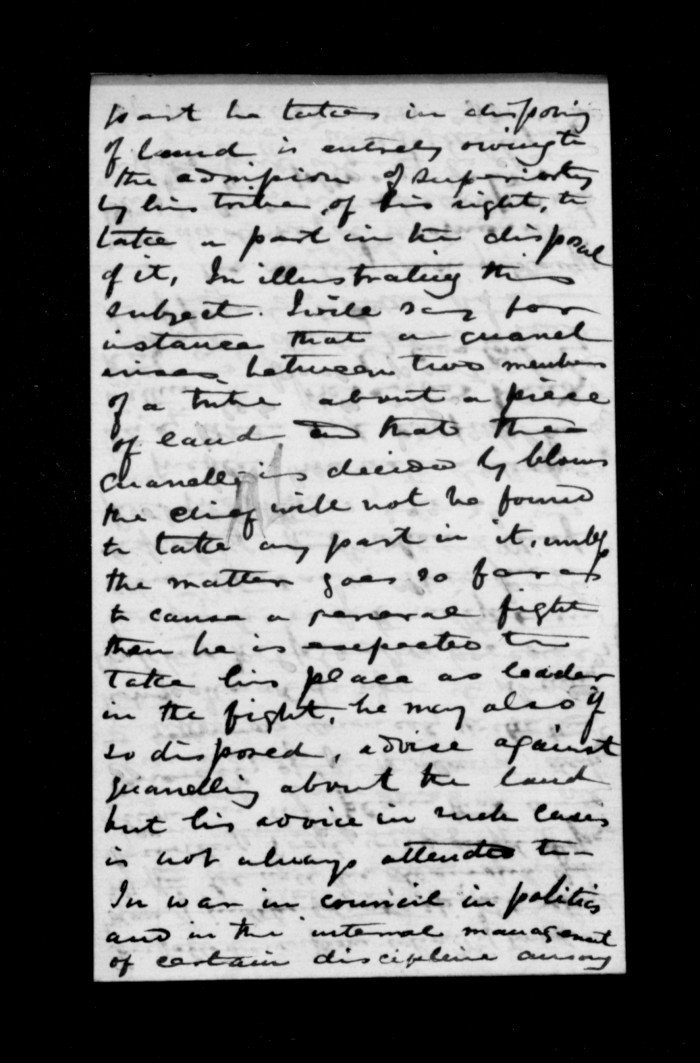 part he takes in disposing
of land is entirely owing to
the admission of superiority
by his tribe, of his right, to
take a part in the disposal
of it, In illustrating this
subject. I will say for
instance that a quarrel
arises between two members
of a tribe about a piece
of land and that the
quarrelling is decided by blows
the chief will not be found
to take any part in it, unless
the matter goes so far as
to cause a general fight
then he is expected to
take his place as leader
in the fight, he may also if
so disposed, advise against
quarrelling about the land
but his advice in such cases
is not always attended to -
In war in council in politics
and in the internal management
of certain discipline among